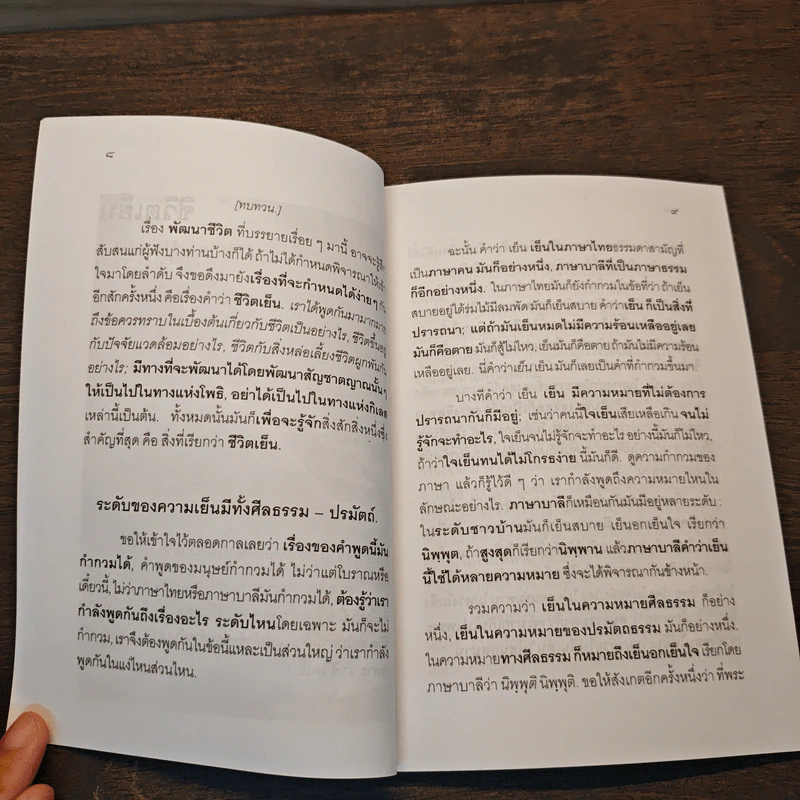 ๘
[ทบทวน.]
เรื่อง พัฒนาชีวิต ที่บรรยายเรื่อย ๆ มานี้ อาจจะรู้สึก
สับสนแก่ผู้ฟังบางท่านบ้างก็ได้ ถ้าไม่ได้กำหนดพิจารณาให้เข้า
ใจมาโดยลำดับ จึงขอดึงมายังเรื่องที่จะกำหนดได้ง่ายๆ กัน
อีกสักครั้งหนึ่ง คือเรื่องคำว่า ชีวิตเย็น. เราได้พูดกันมามากมาย
ถึงข้อควรทราบในเบื้องต้นเกี่ยวกับชีวิตเป็นอย่างไร, ชีวิตขึ้นอยู่
กับปัจจัยแวดล้อมอย่างไร, ชีวิตกับสิ่งหล่อเลี้ยงชีวิตผูกพันกัน
อย่างไร; มีทางที่จะพัฒนาได้โดยพัฒนาสัญชาตญาณนั้นๆ
ให้เป็นไปในทางแห่งโพธิ, อย่าได้เป็นไปในทางแห่งกิเลส
เหล่านี้เป็นต้น. ทั้งหมดนั้นมันก็เพื่อจะรู้จักสิ่งสักสิ่งหนึ่งซึ่ง
สำคัญที่สุด คือ สิ่งที่เรียกว่า ชีวิตเย็น.
ระดับของความเย็นมีทั้งศีลธรรม – ปรมัตถ์.
ขอให้เข้าใจไว้ตลอดกาลเลยว่า เรื่องของคำพูดนี้มัน
กำกวมได้, คำพูดของมนุษย์กำกวมได้ ไม่ว่าแต่โบราณหรือ
เดี๋ยวนี้, ไม่ว่าภาษาไทยหรือภาษาบาลีมันกำกวมได้, ต้องรู้ว่าเรา
กำลังพูดกันถึงเรื่องอะไร ระดับไหนโดยเฉพาะ มันก็จะไม่
กำกวม, เราจึงต้องพูดกันในข้อนี้แหละเป็นส่วนใหญ่ ว่าเรากำลัง
พูดกันในแง่ไหนส่วนไหน.
๙
ฉะนั้น คำว่า เย็น เย็นในภาษาไทยธรรมดาสามัญที่
เป็นภาษาคน มันก็อย่างหนึ่ง, ภาษาบาลีที่เป็นภาษาธรรม
ก็อีกอย่างหนึ่ง. ในภาษาไทยมันก็ยังกำกวมในข้อที่ว่า ถ้าเย็น
สบายอยู่ใต้ร่มไม้มีลมพัด มันก็เย็นสบาย คำว่าเย็น ก็เป็นสิ่งที่
ปรารถนา; แต่ถ้ามันเย็นหมดไม่มีความร้อนเหลืออยู่เลย
มันก็คือตาย มันก็สู้ไม่ไหว, เย็นมันก็คือตาย ถ้ามันไม่มีความร้อน
เหลืออยู่เลย. นี่คำว่าเย็น เย็น มันก็เลยเป็นคำที่กำกวมขึ้นมา.
บางทีคำว่า เย็น เย็น มีความหมายที่ไม่ต้องการ
ปรารถนากันก็มีอยู่; เช่นว่าคนนี้ใจเย็นเสียเหลือเกิน จนไม่
รู้จักจะทำอะไร, ใจเย็นจนไม่รู้จักจะทำอะไร อย่างนี้มันก็ไม่ไหว,
ถ้าว่าใจเย็นทนได้ไม่โกรธง่าย นี้มันก็ดี. ดูความกำกวมของ
ภาษา แล้วก็รู้ไว้ดี ๆ ว่า เรากำลังพูดถึงความหมายไหนใน
ลักษณะอย่างไร. ภาษาบาลีก็เหมือนกันมันมีอยู่หลายระดับ :
ในระดับชาวบ้านมันก็เย็นสบาย เย็นอกเย็นใจ เรียกว่า
นิพฺพุต, ถ้าสูงสุดก็เรียกว่านิพพาน แล้วภาษาบาลีคำว่าเย็น
นี้ใช้ได้หลายความหมาย ซึ่งจะได้พิจารณากันข้างหน้า.
รวมความว่า เย็นในความหมายศีลธรรม ก็อย่าง
หนึ่ง, เย็นในความหมายของปรมัตถธรรม มันก็อย่างหนึ่ง.
ในความหมายทางศีลธรรม ก็หมายถึงเย็นอกเย็นใจ เรียกโดย
ภาษาบาลีว่า นิพฺพุติ นิพฺพุติ. ขอให้สังเกตอีกครั้งหนึ่งว่า ที่พระ